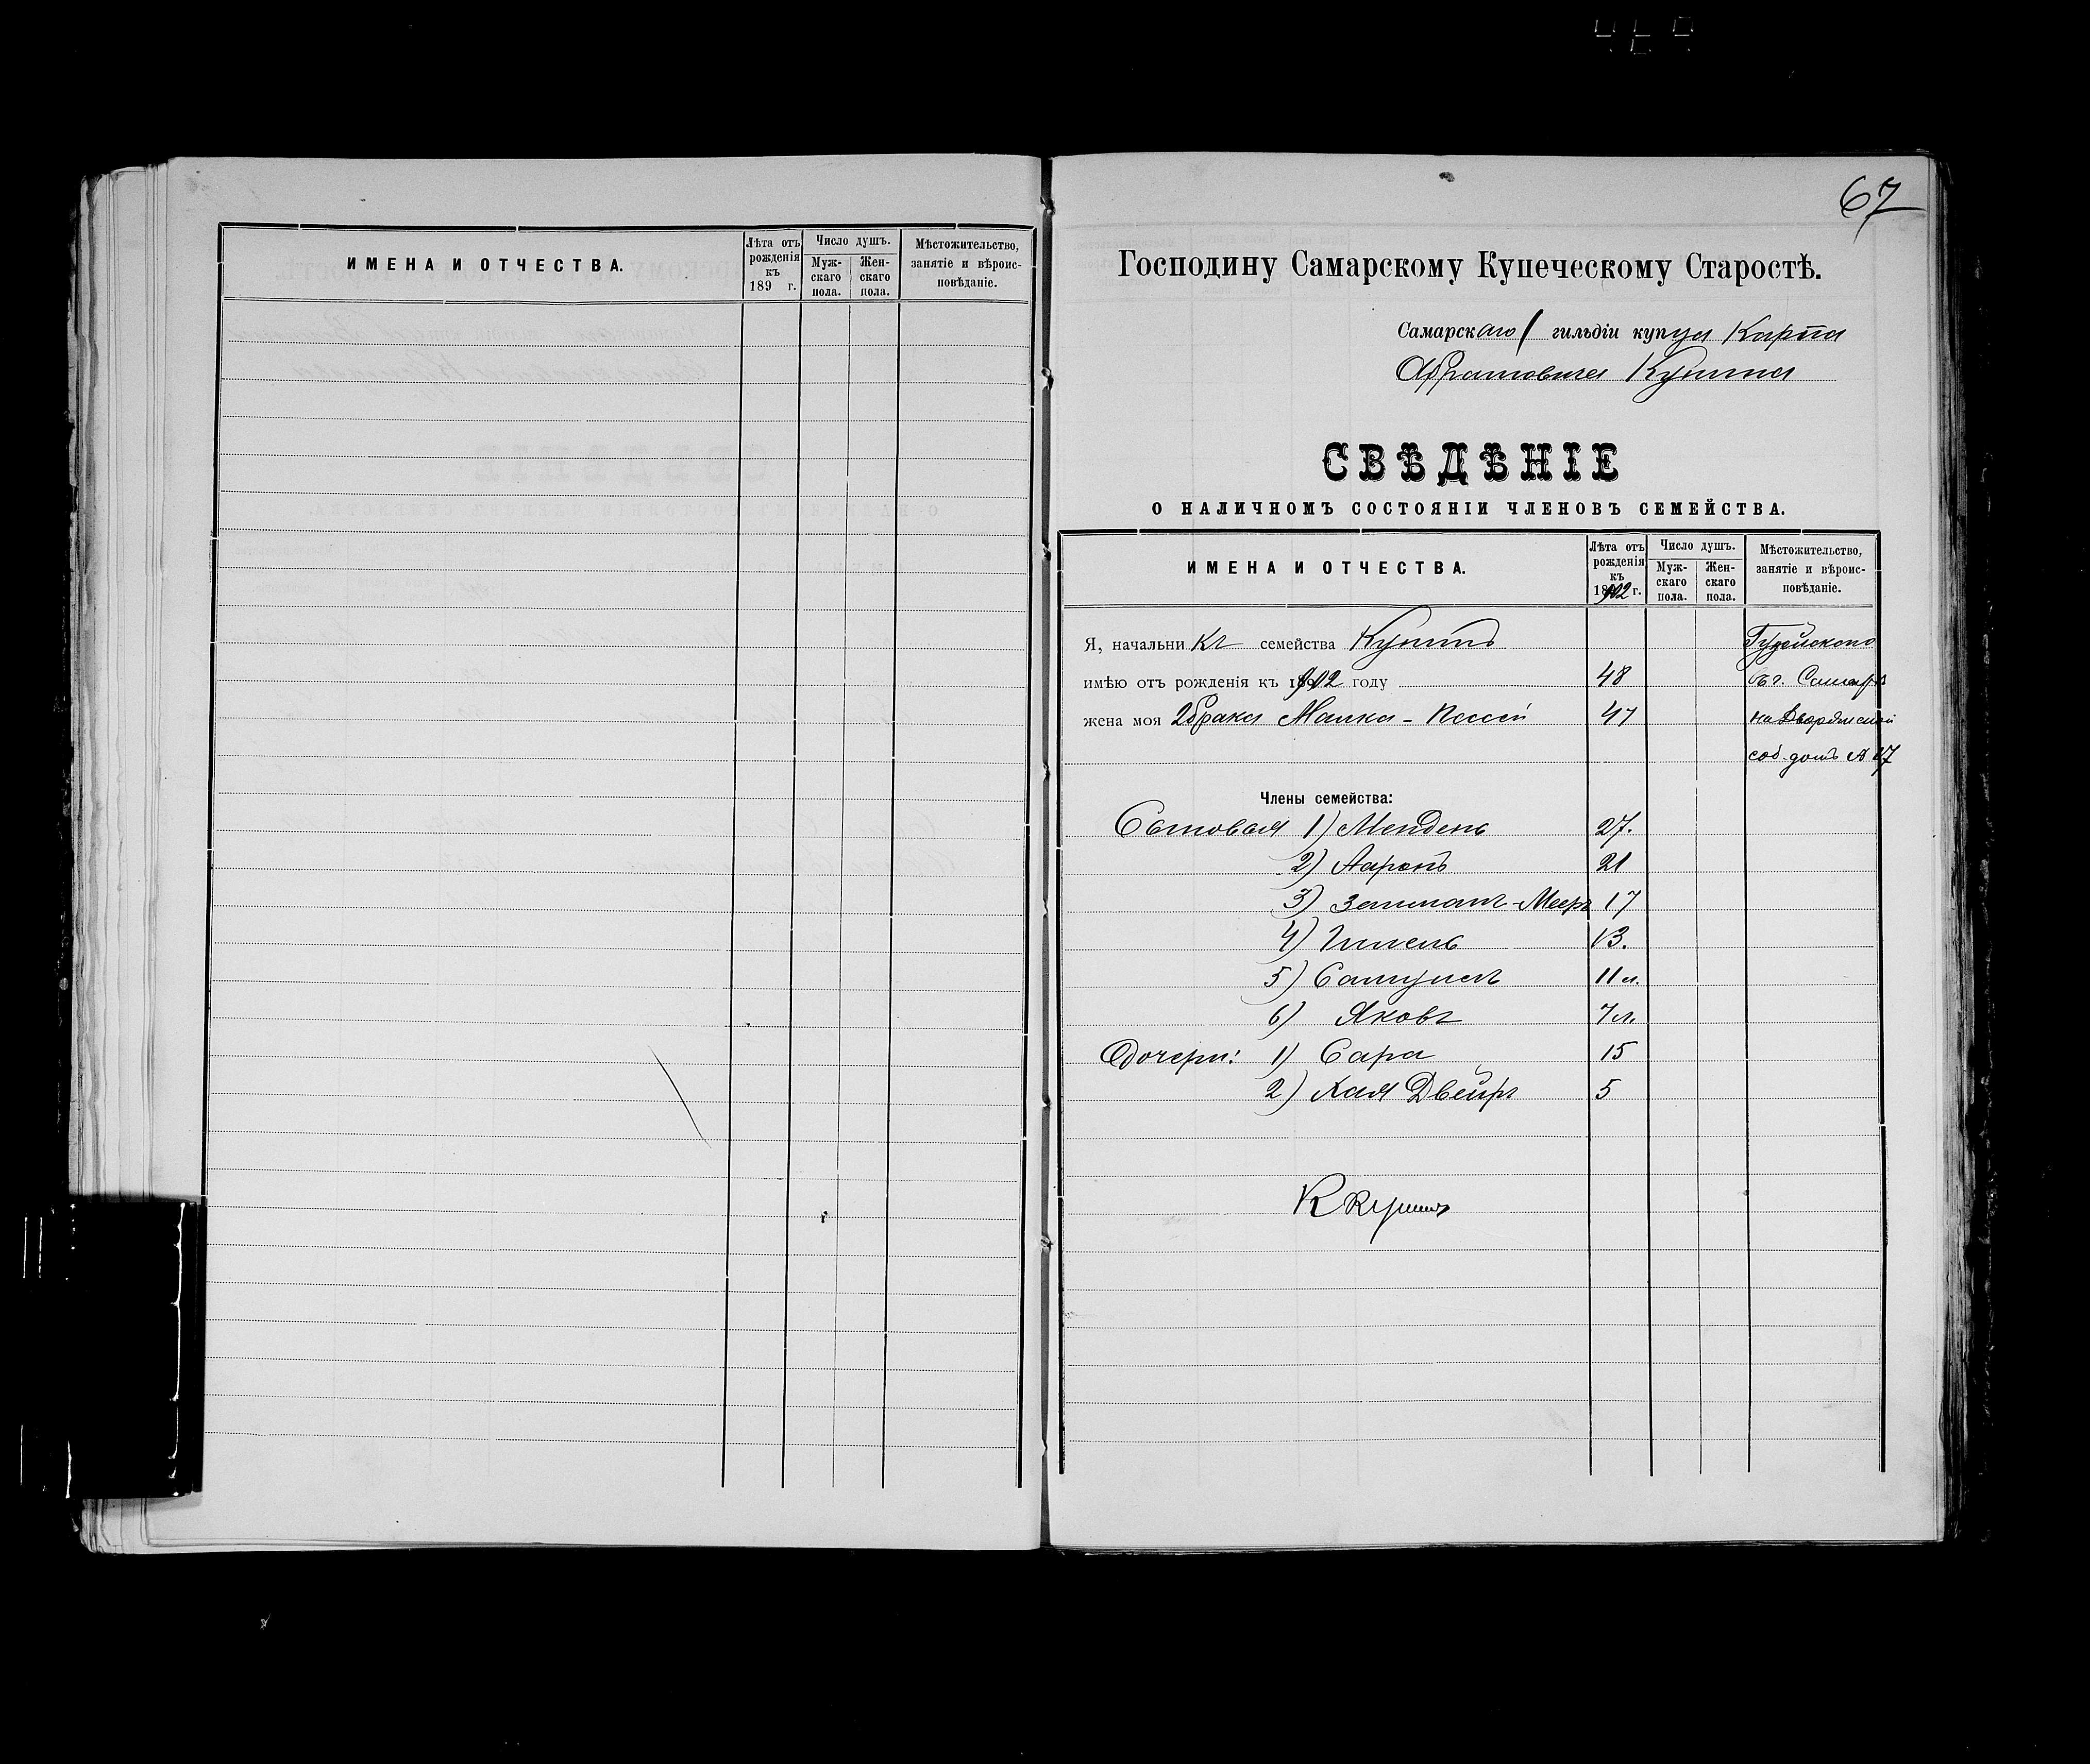 ИМЕНА И ОТЧЕСТВА.
Лѣта отъ рожденія къ 189 г.
Число душъ.
Мужскаго пола.
Женскаго пола.
Мѣстожительство, занятіе и вѣроисповѣданіе.
67
Господину Самарскому Купеческому Старостѣ.
Самарскаго 1 гильдіи купца Карпа
Абрамовича
СВѢДѢНІЕ
О НАЛИЧНОМЪ СОСТОЯНІИ ЧЛЕНОВЪ СЕМЕЙСТВА.
ИМЕНА И ОТЧЕСТВА.
Лѣта отъ
рожденія
къ
1902 г.
Число душъ.
Муж-
скаго
пола.
Жен-
скаго
пола.
Мѣстожительство,
занятіе и вѣроис-
повѣданіе.
Я, начальникъ семейства
имѣю отъ рожденія къ 1902 году 48 въ г. Самарѣ
жена моя 2 брака 47 на Дворянской
соб. домъ
Члены семейства:
Сыновья 1) Мендель 27.
2) Ааронъ 21
3) Залманъ-Мееръ 17
4) 13.
5) Самуилъ 11 л.
6) Яковъ 7 л.
Дочери: 1) Сара 15
2) Хая Двейръ 5